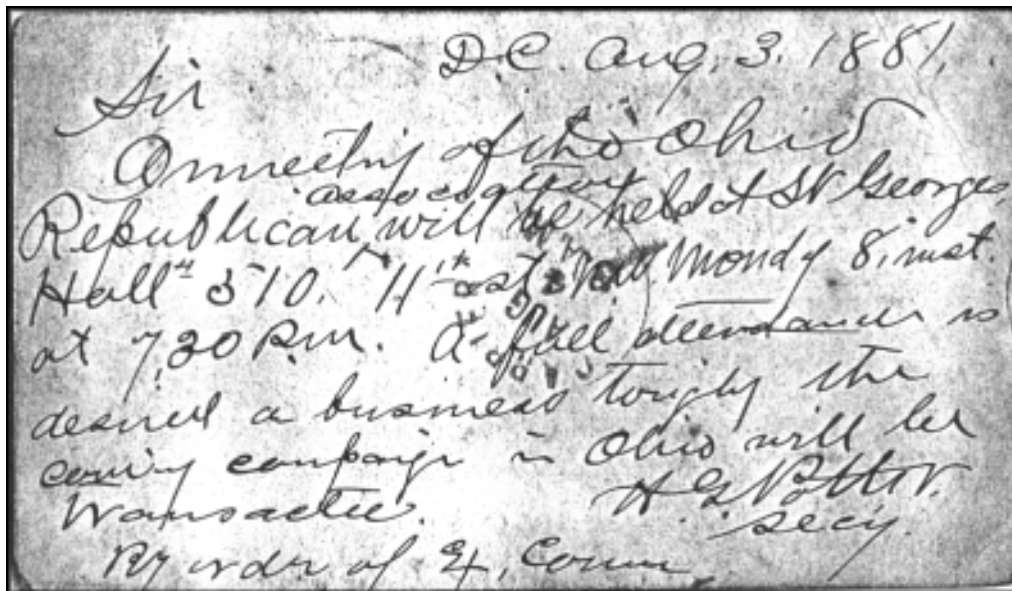 D.C. Aug. 3. 1881.
Sir
A meeting of the Ohio
association
Republican will be held at St Georges
Hall 510. 11th st. N.W. Mondy 8. inst.
at 7,30 P.m. A full attendance is
desired a business the
coming campaign in Ohio will be
transacted. Potter.
secy.
By order of Ex, Comm